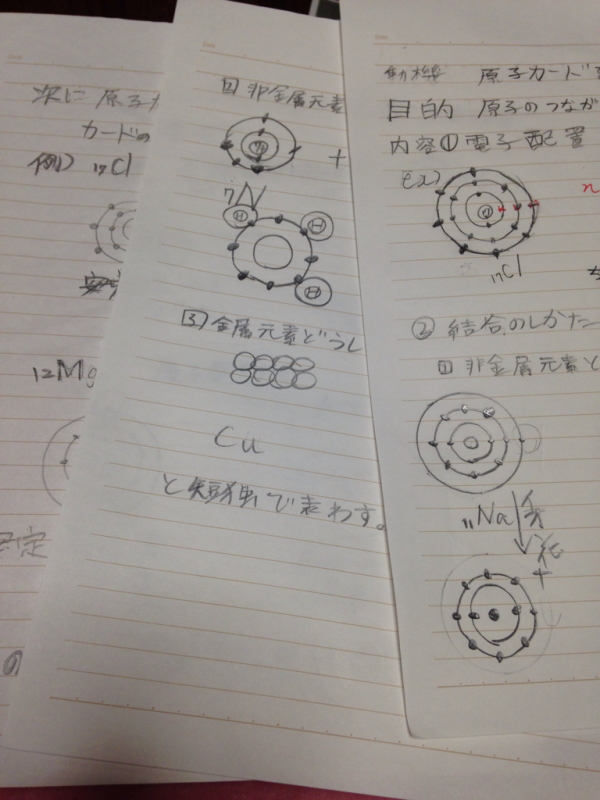 次に 原子カ
カードの
例) ₁₇Cl
₁₂Mg
定
②非金属元素
+
₇N
H
H
H
③金属元素どうし
Cu
で表わす。
動機 原子カード
目的 原子のつなが
内容① 電子配置
ex)
n
₁₇Cl
② 結合のしかた
① 非金属元素と
₁₁Na
+